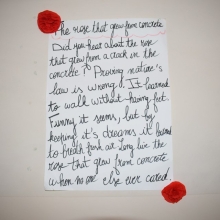 The rose that grew from concrete
Did you hear about the rose
that grew from a crack in the
concrete? Proving nature's
law is wrong. It learned
to walk without having feet.
Funny it seems, but by
keeping it's dreams it learned
to breath fresh air. Long live the
rose that grew from concrete
when no one else ever cared.